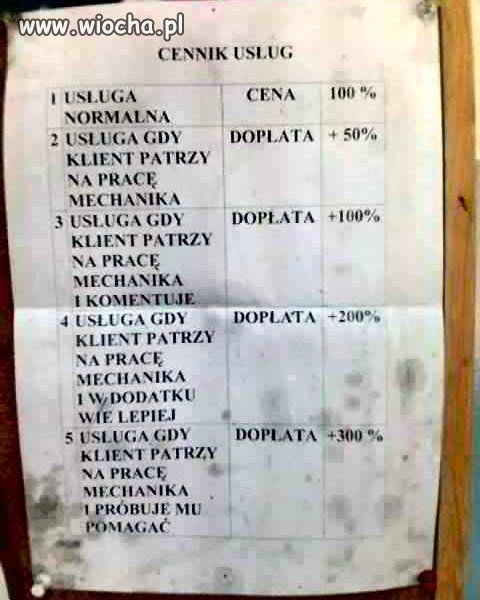 www.wiocha.pl
CENNIK USŁUG
1 USŁUGA CENA 100 %
NORMALNA
2 USŁUGA GDY DOPŁATA + 50%
KLIENT PATRZY
NA PRACĘ
MECHANIKA
3 USŁUGA GDY DOPŁATA +100%
KLIENT PATRZY
NA PRACĘ
MECHANIKA
I KOMENTUJE
4 USŁUGA GDY DOPŁATA +200%
KLIENT PATRZY
NA PRACĘ
MECHANIKA
I W DODATKU
WIE LEPIEJ
5 USŁUGA GDY DOPŁATA +300 %
KLIENT PATRZY
NA PRACĘ
MECHANIKA
I PRÓBUJE MU
POMAGAĆ